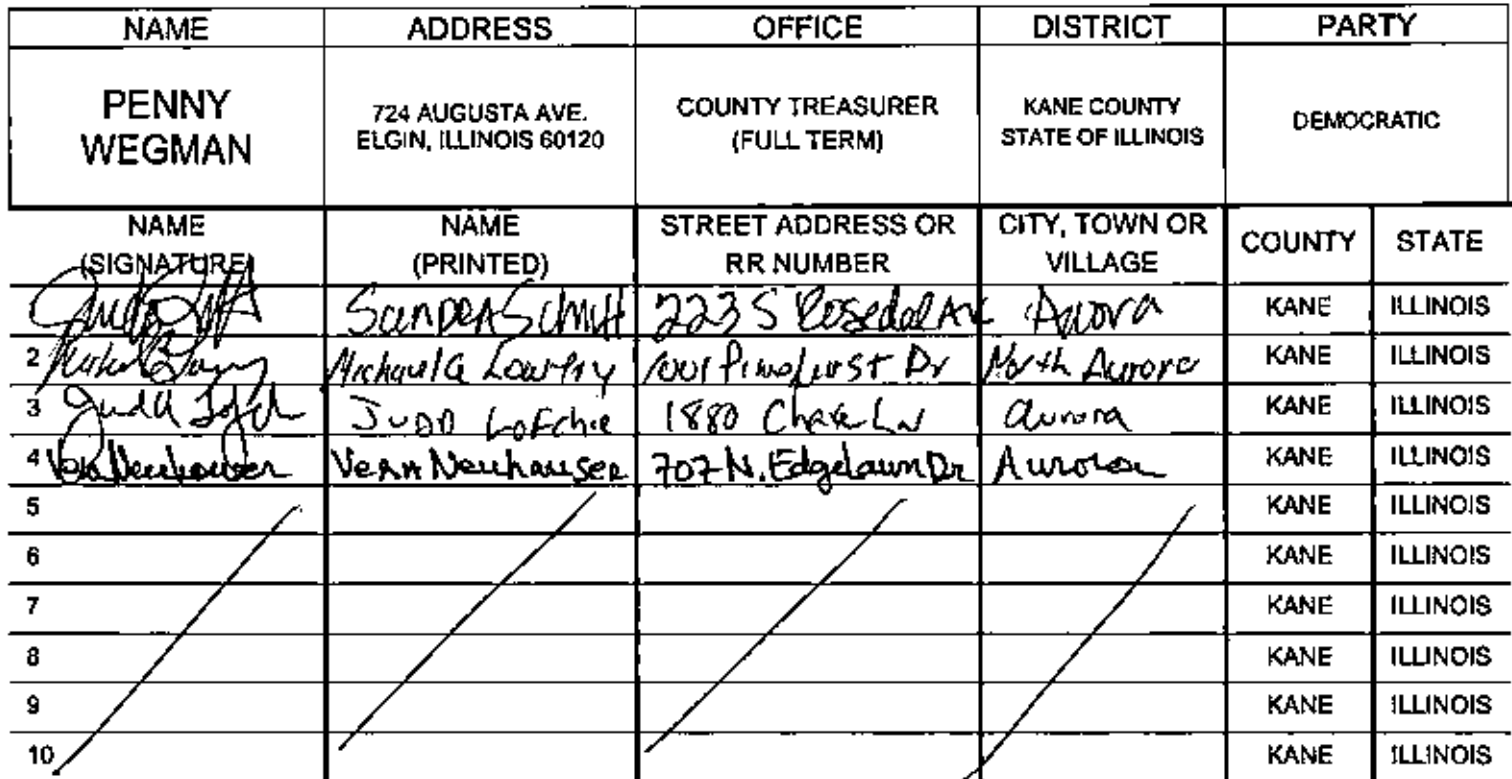 NAME ADDRESS OFFICE DISTRICT PARTY
PENNY WEGMAN 724 AUGUSTA AVE. ELGIN, ILLINOIS 60120 COUNTY TREASURER (FULL TERM) KANE COUNTY STATE OF ILLINOIS DEMOCRATIC
NAME (SIGNATURE) NAME (PRINTED) STREET ADDRESS OR RR NUMBER CITY, TOWN OR VILLAGE COUNTY STATE
223 S Aurora KANE ILLINOIS
2 Dr North Aurora KANE ILLINOIS
3 JUDD LOFchie 1880 Chase Ln aurora KANE ILLINOIS
4 Vern Neuhauser 707 N. Edgelawn Dr Aurora KANE ILLINOIS
5 KANE ILLINOIS
6 KANE ILLINOIS
7 KANE ILLINOIS
8 KANE ILLINOIS
9 KANE ILLINOIS
10 KANE ILLINOIS